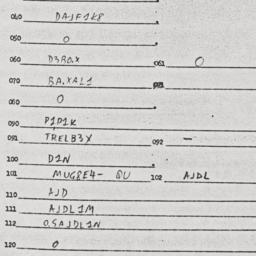 040 DAJF1K8
050 0
060 D3RA.X 061 0
070 RA.XAL1
080 0
090 P1P1K
091 TRELB3X 092 —
100 D1N
101 MUG8E4- 8U 102 AJDL
110 AJD
111 AJDL1M
112 0.5AJDL1N
120 0